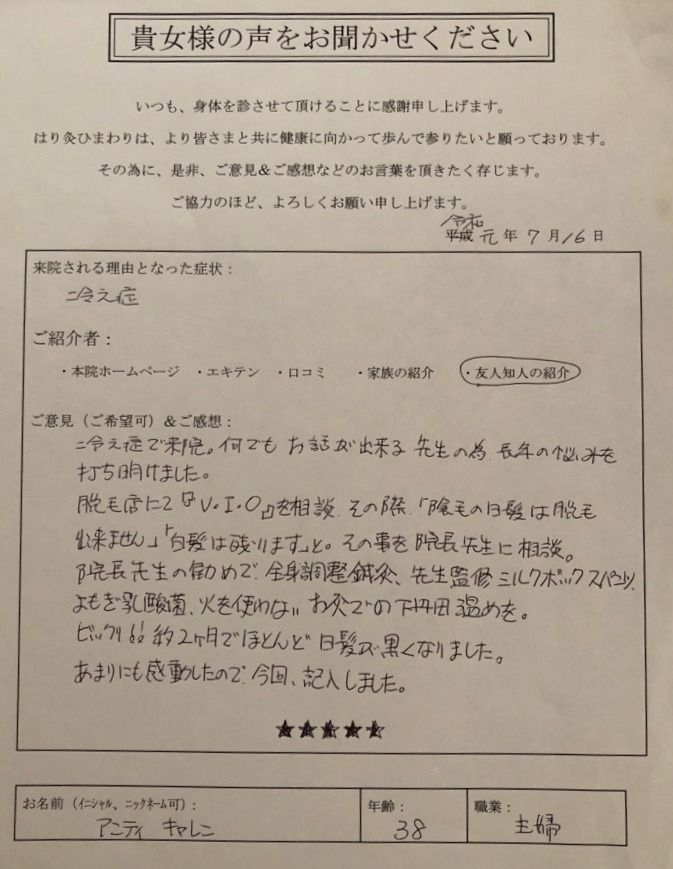 貴女様の声をお聞かせください
いつも、身体を診させて頂けることに感謝申し上げます。
はり灸ひまわりは、より皆さまと共に健康に向かって歩んで参りたいと願っております。
その為に、是非、ご意見&ご感想などのお言葉を頂きたく存じます。
ご協力のほど、よろしくお願い申し上げます。
令和
平成 元 年 7 月 16 日
来院される理由となった症状：
冷え症
ご紹介者：
・本院ホームページ ・エキテン ・口コミ ・家族の紹介 ・友人知人の紹介
ご意見（ご希望可）&ご感想：
冷え症で来院。何でも お話が出来る 先生の為、長年の悩みを
打ち明けました。
脱毛店にて『V・I・O』を相談、その際、「陰毛の白髪は脱毛
出来ません」「白髪は残ります」と。その事を院長先生に相談。
院長先生の勧めで、全身調整鍼灸、先生監修ミルクボックスパンツ、
よもぎ乳酸菌、火を使わない お灸での下丹田温めを。
ビックリ!! 約2ヶ月でほとんど 白髪が黒くなりました。
あまりにも感動したので、今回、記入しました。
★★★★★
お名前（イニシャル、ニックネーム可）： 年齢： 職業：
アニティ キャレン 38 主婦